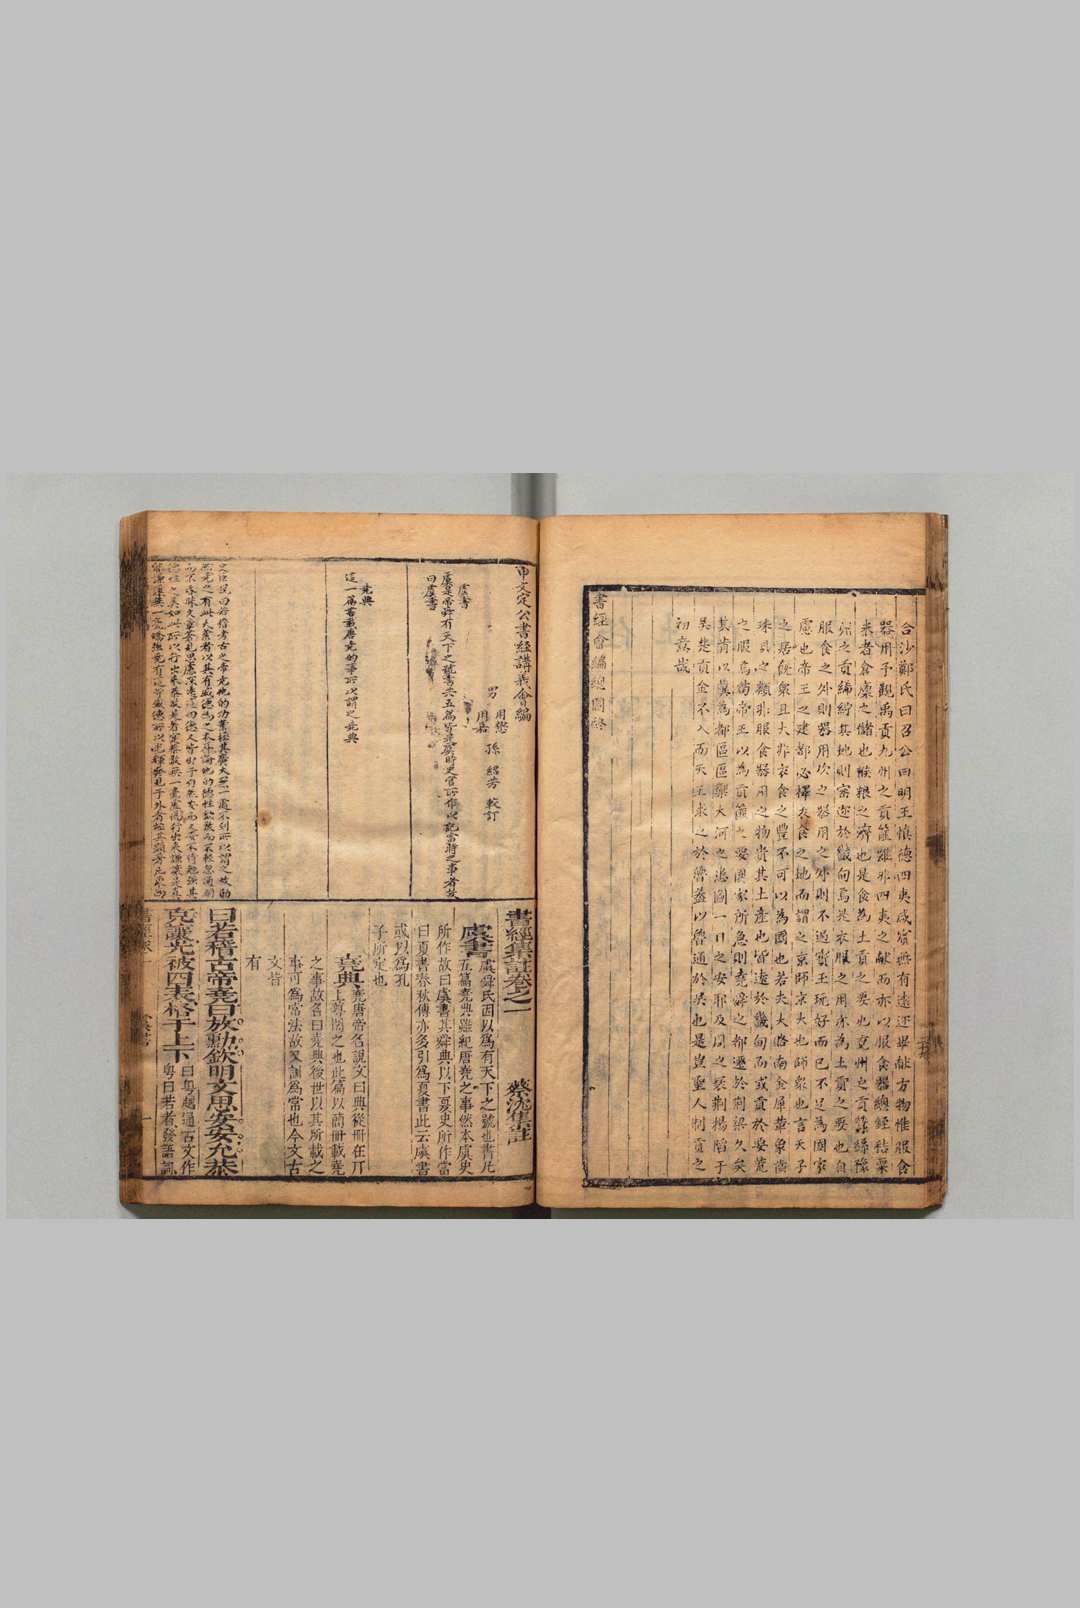 合沙鄭氏曰召公曰明王慎德四夷咸賓無有遠迩畢獻方物惟服食
器用予觀禹貢九州之貢篚雖非四夷之獻而亦以服食器總銍秸粟
米者倉廩之儲也餱粮之濟也是食為土貢之要也兗州之貢絲豫
州之貢絺紵其地則密迩於甸焉是衣服之用亦為土貢之要也自
服食之外則器用次之器用之外則不過寶玉玩好而已不足為國家
慮也帝王之建都必擇衣食之地而謂之京師京大也師衆也言天子
之居衆且大非衣食之豐不可以為國也若夫大路南金犀革象齒
珠貝之類非服食器用之物貴其土產也皆遠於畿甸而或貢於要荒
之服焉尚帝王以為貢篚之要國家所急則堯舜之都遷於荊梁久矣
其肯以冀為都區區樂大河之一日之安耶及周之衰荊楊陷于
吳楚貢金不入而天王求之於魯蓋以魯通於吳也是豈聖人制貢之
初意哉
書經會編總圖終
申文定公書經講義會編
男 用懋 用嘉 孫 紹芳 較訂
虞書
虞是帝舜有天下之號書共五篇皆是虞時史官所作以記當時之事者故
曰虞書
堯典
這一篇書載唐堯的事所以謂之堯典
史臣說曰若稽考古之帝堯他的功業極其廣大無一處不到所以謂之放勳
書經集註卷之一 蔡沈集註
虞書 虞舜氏因以為有天下之號也書凡
五篇堯典雖紀唐堯之事然本虞史
所作故曰虞書其舜典以下夏史所作當
曰夏書春秋傳亦多引為夏書此云虞書
或以為孔
子所定也
堯典 堯唐帝名說文曰典從冊在丌
上尊閣之也此篇以簡冊載堯
之事故名曰堯典後世以其所載之
事可為常法故又訓為常也今文古
文皆
有
曰若稽古帝堯曰放勳欽明文思安安允恭
克讓光被四表格于上下 曰粵越通古文作
粵曰若者發語詞